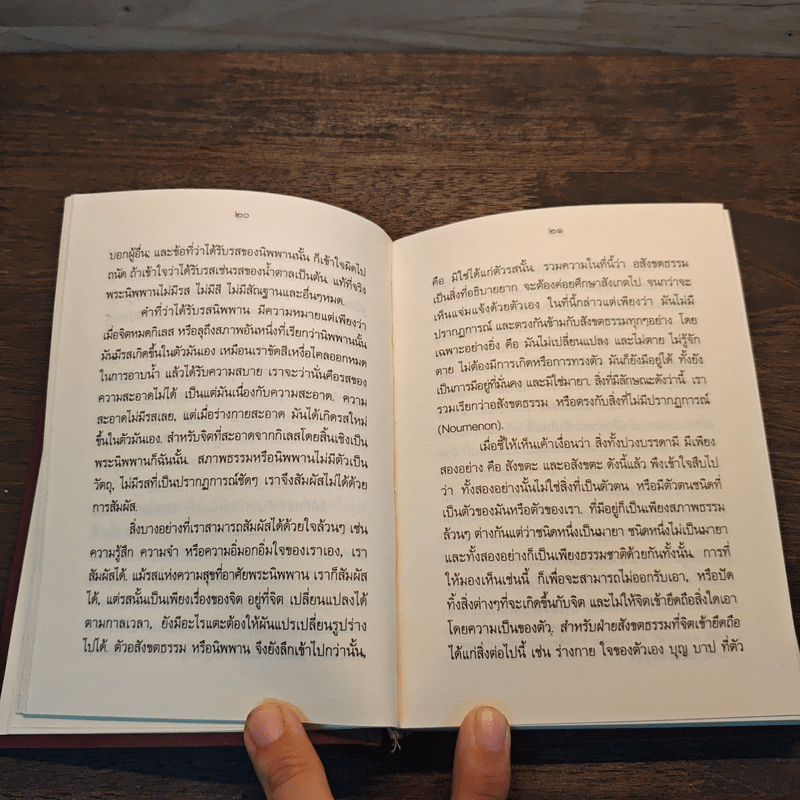 ๒๐
บอกผู้อื่น; และข้อที่ว่าได้รับรสของนิพพานนั้น ก็เข้าใจผิดไป
ถนัด ถ้าเข้าใจว่าได้รับรสเช่นรสของน้ำตาลเป็นต้น. แท้ที่จริง
พระนิพพานไม่มีรส ไม่มีสี ไม่มีสัณฐานและอื่นๆหมด.
คำที่ว่าได้รสนิพพาน มีความหมายแต่เพียงว่า
เมื่อจิตหมดกิเลส หรือลุถึงสภาพอันหนึ่งที่เรียกว่านิพพานนั้น
มันมีรสเกิดขึ้นในตัวมันเอง เหมือนเราขัดสีเหงื่อไคลออกหมด
ในการอาบน้ำ แล้วได้รับความสบาย เราจะว่านั่นคือรสของ
ความสะอาดไม่ได้ เป็นแต่มันเนื่องกับความสะอาด. ความ
สะอาดไม่มีรสเลย, แต่เมื่อร่างกายสะอาด มันได้เกิดรสใหม่
ขึ้นในตัวมันเอง. สำหรับจิตที่สะอาดจากกิเลสโดยสิ้นเชิงเป็น
พระนิพพานก็ฉันนั้น. สภาพธรรมหรือนิพพานไม่มีตัวเป็น
วัตถุ, ไม่มีรสที่เป็นปรากฏการณ์ชัดๆ เราจึงสัมผัสไม่ได้ด้วย
การสัมผัส.
สิ่งบางอย่างที่เราสามารถสัมผัสได้ด้วยใจล้วนๆ เช่น
ความรู้สึก ความจำ หรือความอิ่มอกอิ่มใจของเราเอง, เรา
สัมผัสได้. แม้รสแห่งความสุขที่อาศัยพระนิพพาน เราก็สัมผัส
ได้, แต่รสนั้นเป็นเพียงเรื่องของจิต อยู่ที่จิต เปลี่ยนแปลงได้
ตามกาลเวลา, ยังมีอะไรแตะต้องให้ผันแปรเปลี่ยนรูปร่าง
ไปได้. ตัวอสังขตธรรม หรือนิพพาน จึงยังลึกเข้าไปกว่านั้น,
๒๑
คือ มิใช่ได้แก่ตัวรสนั้น. รวมความในที่นี้ว่า อสังขตธรรม
เป็นสิ่งที่อธิบายยาก จะต้องค่อยศึกษาสังเกตไป จนกว่าจะ
เห็นแจ่มแจ้งด้วยตัวเอง ในที่นี้กล่าวแต่เพียงว่า มันไม่มี
ปรากฏการณ์ และตรงกันข้ามกับสังขตธรรมทุกๆอย่าง โดย
เฉพาะอย่างยิ่ง คือ มันไม่เปลี่ยนแปลง และไม่ตาย ไม่รู้จัก
ตาย ไม่ต้องมีการเกิดหรือการทรงตัว มันก็ยังมีอยู่ได้ ทั้งยัง
เป็นการมีอยู่ที่มั่นคง และมิใช่มายา. สิ่งที่มีลักษณะดังว่านี้ เรา
รวมเรียกว่าอสังขตธรรม หรือตรงกับสิ่งที่ไม่มีปรากฏการณ์
(Noumenon).
เมื่อชี้ให้เห็นเค้าเงื่อนว่า สิ่งทั้งปวงบรรดามี มีเพียง
สองอย่าง คือ สังขตะ และอสังขตะ ดังนี้แล้ว พึงเข้าใจสืบไป
ว่า ทั้งสองอย่างนั้นไม่ใช่สิ่งที่เป็นตัวตน หรือมีตัวตนชนิดที่
เป็นตัวของมันหรือตัวของเรา. ที่มีอยู่ก็เป็นเพียงสภาพธรรม
ล้วนๆ ต่างกันแต่ว่าชนิดหนึ่งเป็นมายา ชนิดหนึ่งไม่เป็นมายา
และทั้งสองอย่างก็เป็นเพียงธรรมชาติด้วยกันทั้งนั้น. การที่
ให้มองเห็นเช่นนี้ ก็เพื่อจะสามารถไม่ออกรับเอา, หรือปัด
ทิ้งสิ่งต่างๆที่จะเกิดขึ้นกับจิต และไม่ให้จิตเข้ายึดถือสิ่งใดเอา
โดยความเป็นของตัว. สำหรับฝ่ายสังขตธรรมที่จิตเข้ายึดถือ
ได้แก่สิ่งต่อไปนี้ เช่น ร่างกาย ใจของตัวเอง บุญ บาป ที่ตัว